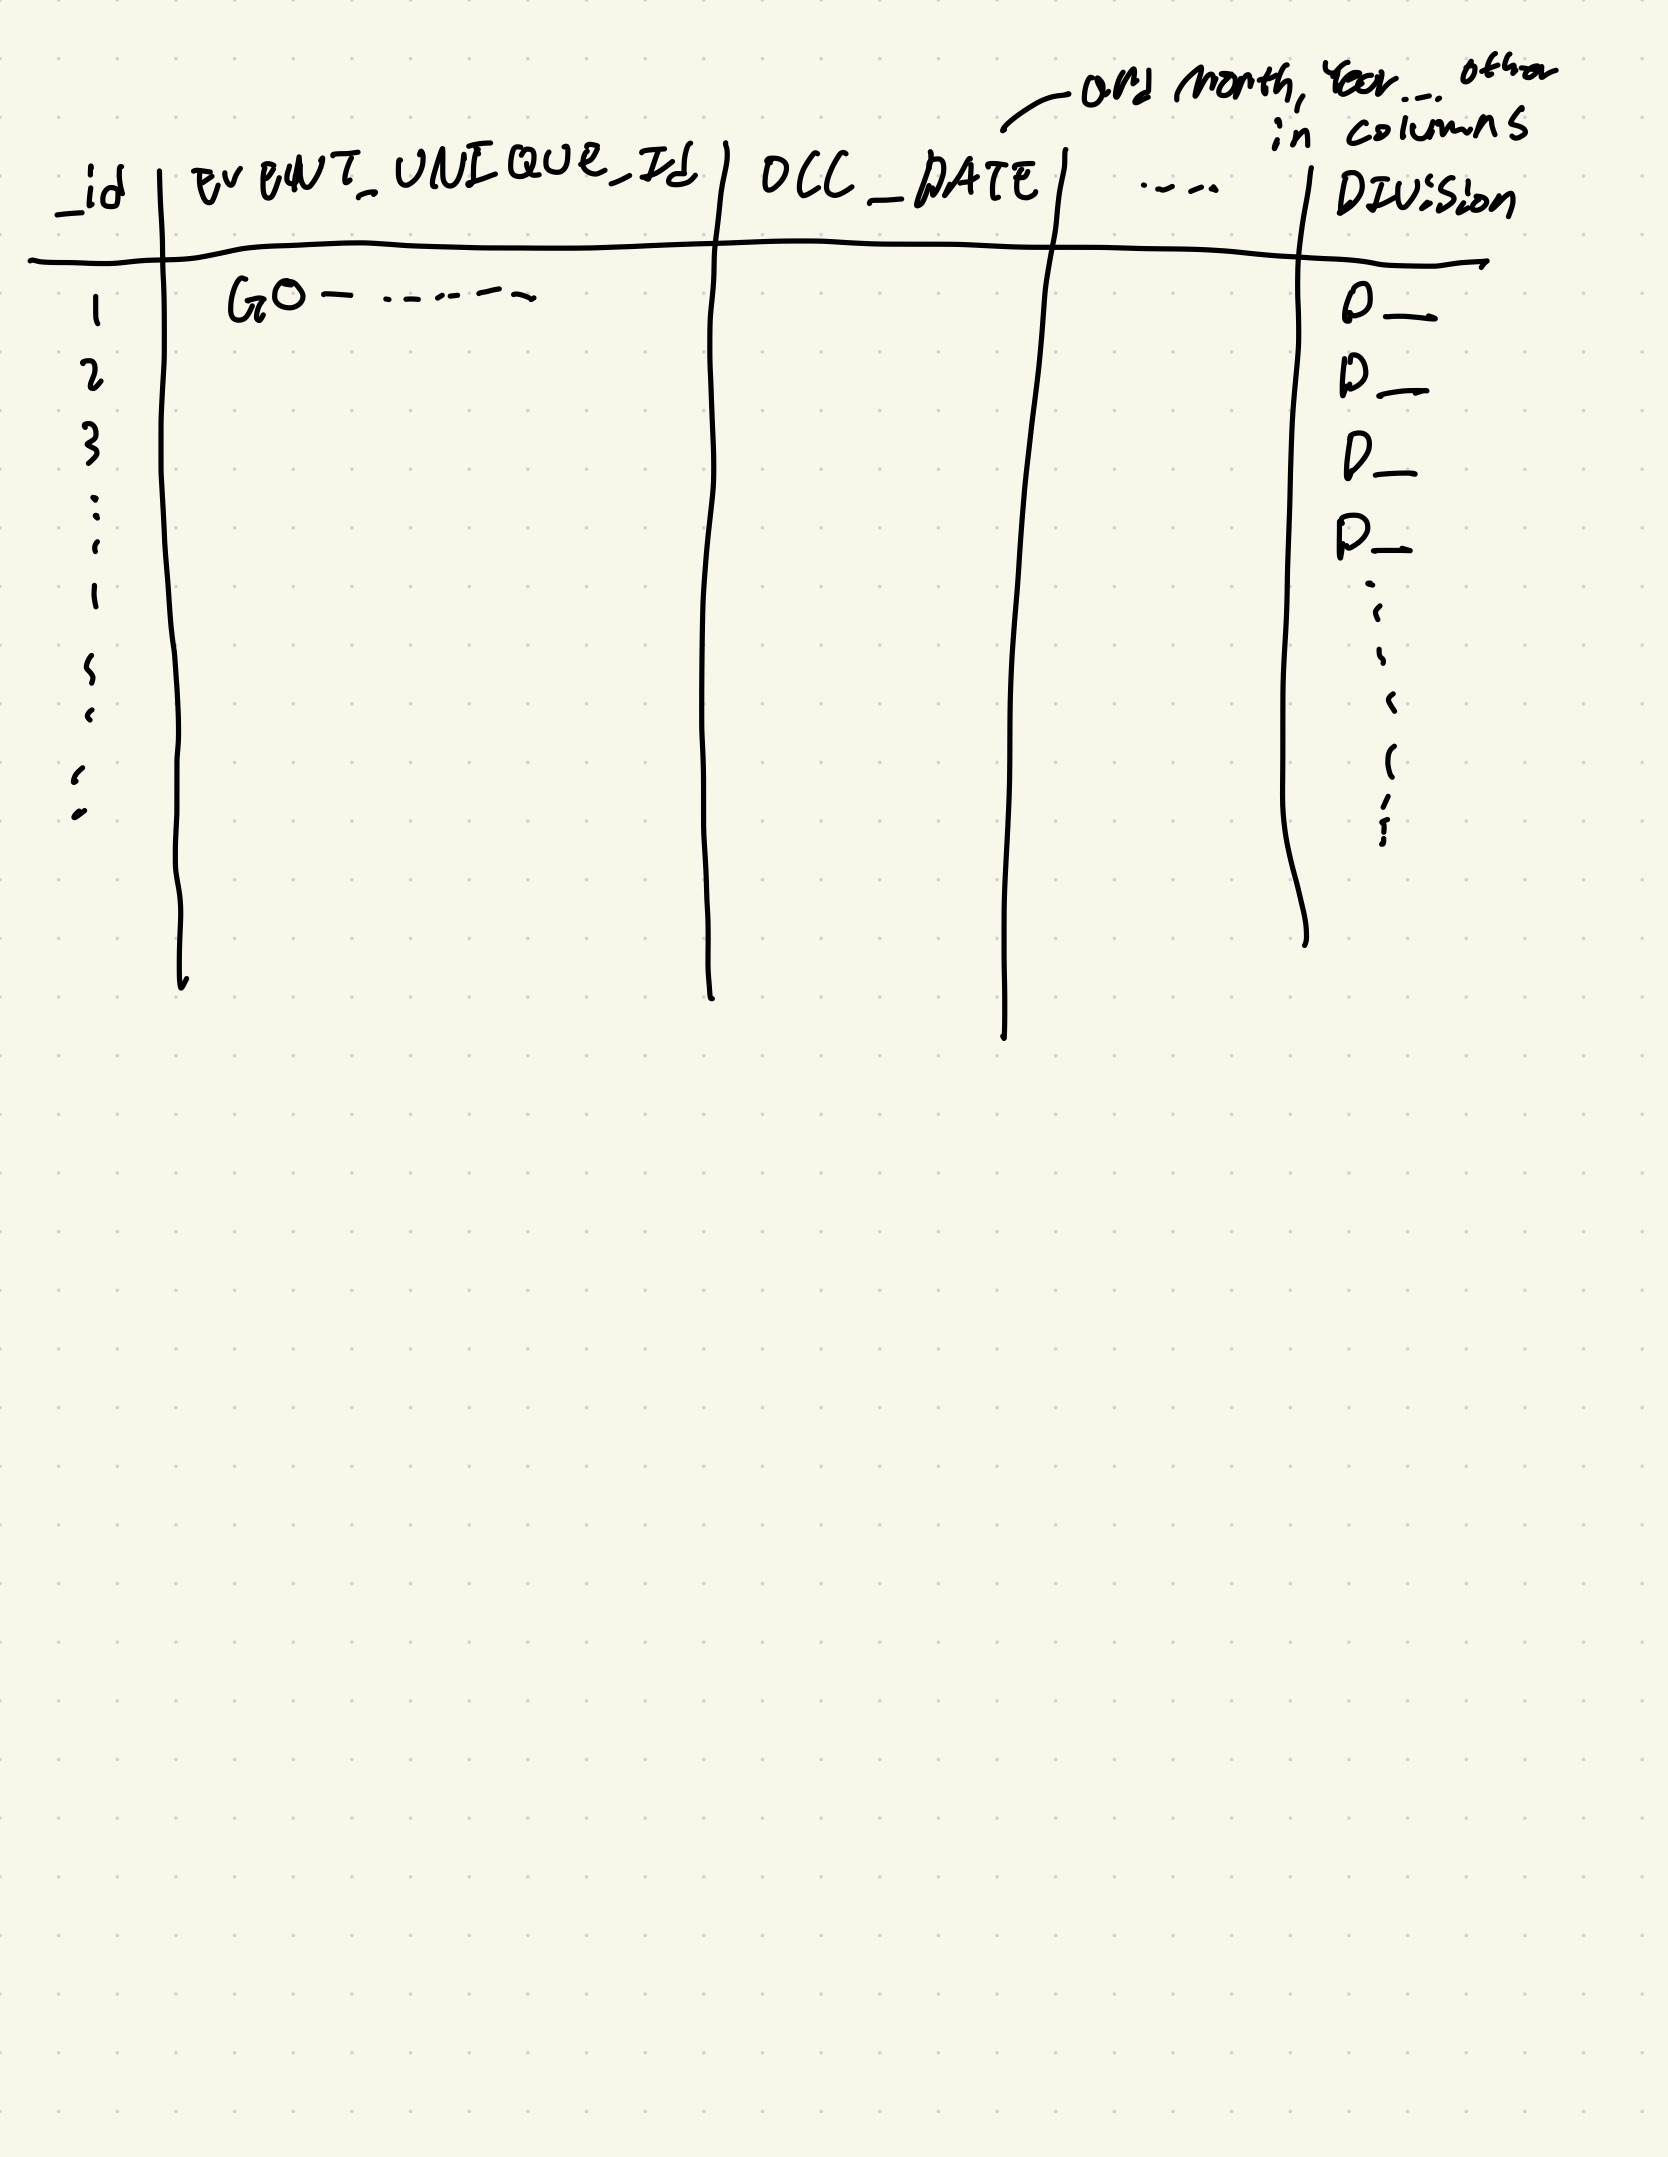 and month, Year.... other
in columns
_id EVENT_UNIQUE_Id OCC_DATE ..... DIVISion
1 GO - - - - - - - D__
2 D__
3 D__
D__